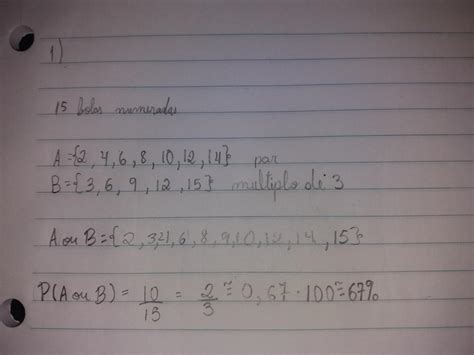 1)
15 bolas numeradas
A = {2, 4, 6, 8, 10, 12, 14} par
B = {3, 6, 9, 12, 15} multiplo de 3
A ou B = {2, 3, 4, 6, 8, 9, 10, 12, 14, 15}
P(A ou B) = 10/15 = 2/3 ≅ 0,67 · 100 ≅ 67%